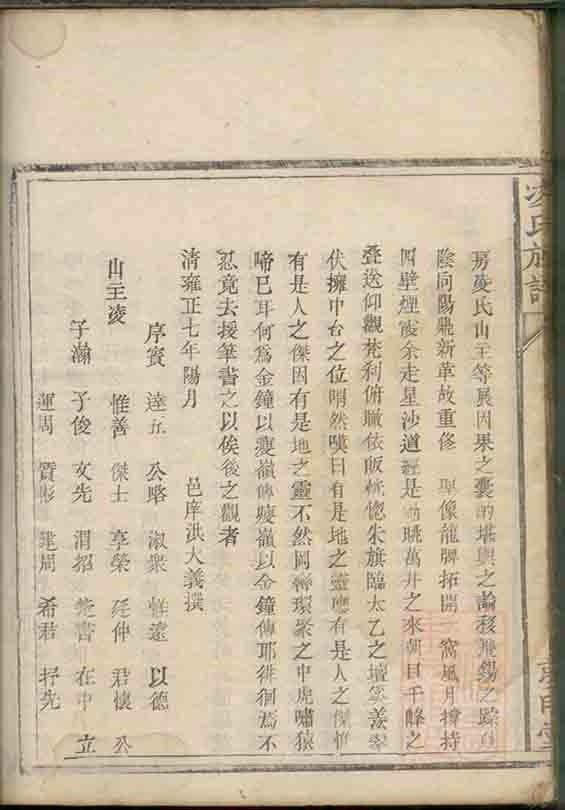 凌氏族譜
房凌氏山主等展因果之囊的堪輿之論移飛錫之踪
陰向陽鼎新革故重修 聖像龍牌拓開一窩風月撐持
四壁煙霞余走星沙道經是 眺萬井之來朝目千峰之
疊送仰觀梵刹俯瞰依 恍惚朱旗臨太乙之壇 蓋
伏擁中台之位喟然嘆曰有是地之靈應有是人之傑惟
有是人之傑因有是地之靈不然岡巒環聚之中虎嘯猿
啼已耳何為金鐘以瘦嶺傳瘦嶺以金鐘傳耶徘徊焉不
忍竟去援筆書之以俟後之觀者
清雍正七年陽月 邑庠洪大義撰
序賓 達五 公略 淑眾 鮮遠 以德
山主凌 惟善 傑士 享榮 廷仲 君懷 公
子瀚 子俊 文先 渭招 書 在中 立
運周 質彬 建周 希君 抒先